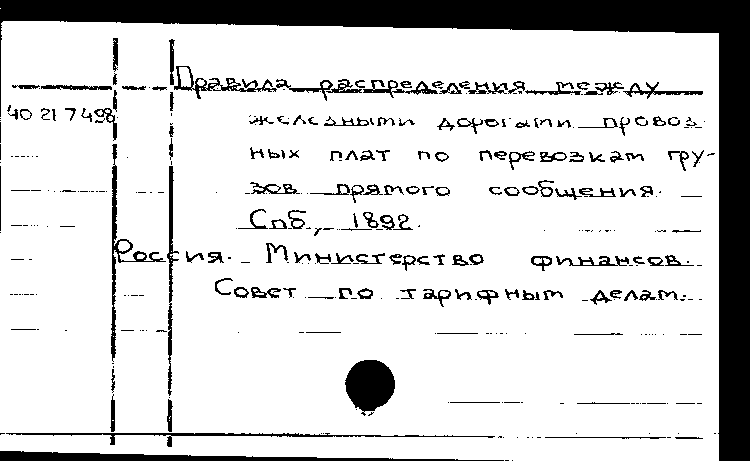 Правила распределения между
40 21 7498 железными дорогами провоз
ных плат по перевозкам гру-
зов прямого сообщения.
Спб, 1892.
Россия. Министерство финансов.
Совет по тарифным делам.